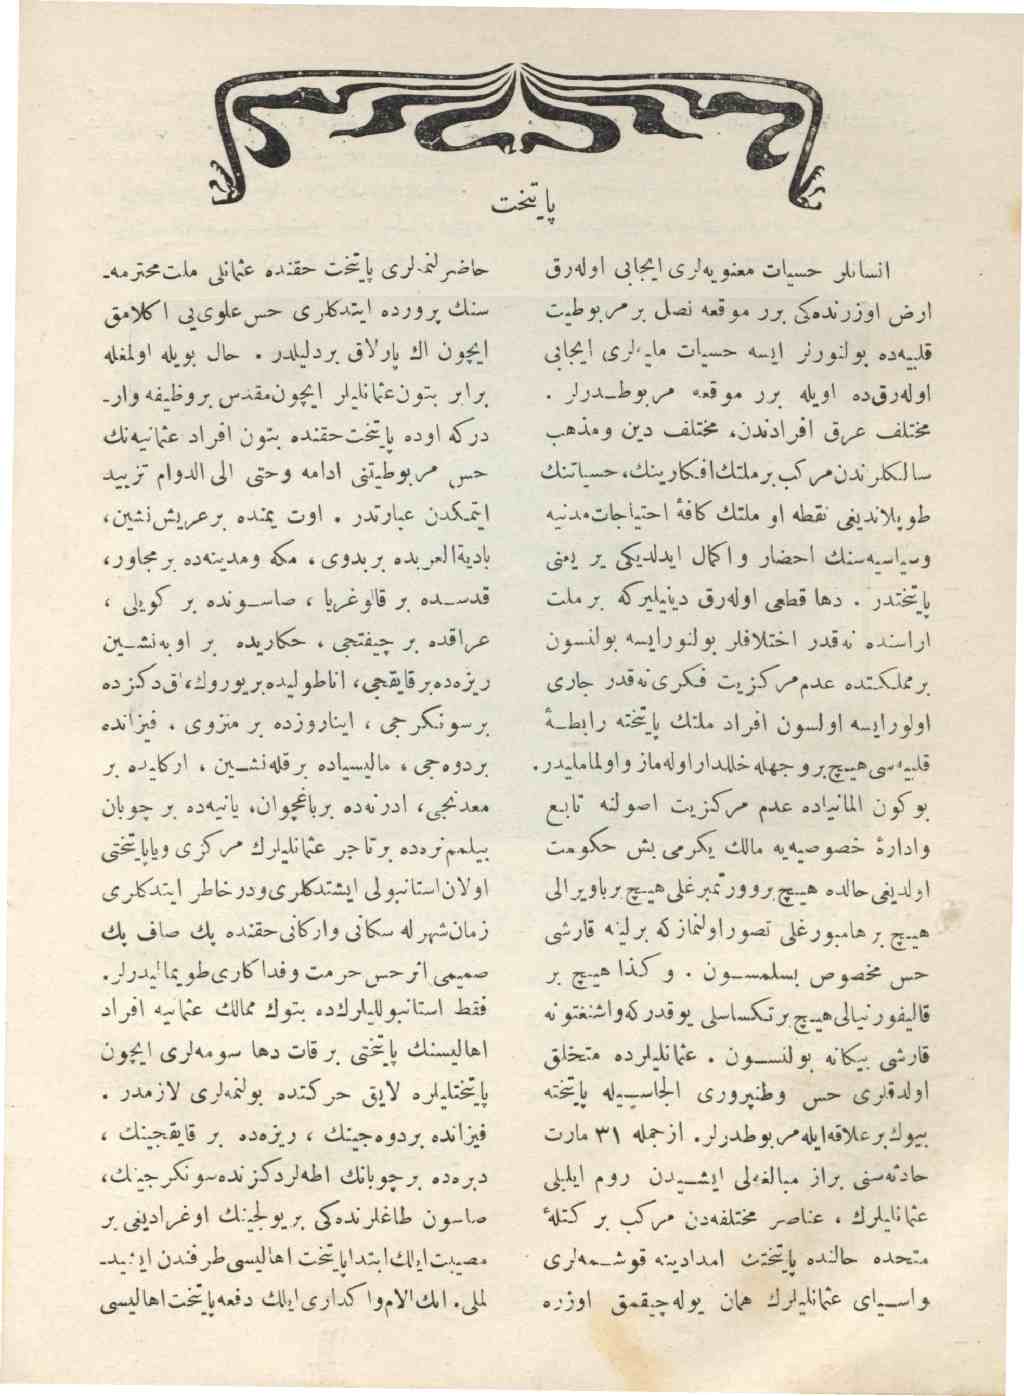 پایتخت
انسانلر حسیات معنویه‌لری ایجابی اوله‌رق
ارض اوزرنده‌کی برر موقعه نصل بر مربوطیت
قلبیه‌ده بولنورلر ایسه حسیات ملیه‌لری ایجابی
اوله‌رق‌ده اویله برر موقعه مربوطدرلر .
مختلف عرق افرادندن، مختلف دین ومذهب
سالکلرندن مرکب بر ملتك افکارینك، حسیاتنك
طوپلاندیغی نقطه او ملتك کافۀ احتیاجات مدنیه
وسیاسیه‌سنك احضار و اکمال ایدلدیکی یر یعنی
پایتختدر . دها قطعی اوله‌رق دینیلیرکه بر ملت
اراسنده نه‌قدر اختلافلر بولنورایسه بولنسون
بر مملکتده عدم مرکزیت فکری نه‌قدر جاری
اولورایسه اولسون افراد ملتك پایتخته رابطۀ
قلبیه‌سی هیچ بر وجهله خللدار اوله‌ماز و اولمامالیدر.
بوکون المانیاده عدم مرکزیت اصولنه تابع
وادارۀ خصوصیه‌یه مالك یکرمی بش حکومت
اولدیغی حالده هیچ بر وورتمبرغلی هیچ بر باویرالی
هیچ بر هامبورغلی تصور اولنمازکه برلینه قارشی
حس مخصوص بسلمسون . وکذا هیچ بر
قالیفورنیالی هیچ بر تکساسلی یوقدرکه واشنغتونه
قارشی بیکانه بولنسون . عثمانلیلرده متخلق
اولدقلری حس وطنپروری الجاسیله پایتخته
بیوك بر علاقه ایله مربوطدرلر. ازجمله ٣١ مارت
حادثه‌سنی براز مبالغه‌لی ایشیدن روم ایلیلی
عثمانلیلرك ، عناصر مختلفه‌دن مرکب بر کتلۀ
متحده حالنده پایتختك امدادینه قوشمه‌لری
واسیای عثمانلیلرك همان یوله چیقمق اوزره
حاضرلنمه‌لری پایتخت حقنده عثمانلی ملت محترمه‌ـ
سنك پرورده ایتدکلری حس علوی‌یی اکلامق
ایچون اك پارلاق بردلیلدر . حال بویله اولمغله
برابر بتون عثمانلیلر ایچون مقدس بر وظیفه وارـ
درکه اوده پایتخت حقنده بتون افراد عثمانیه‌نك
حس مربوطیتنی ادامه وحتی الی الدوام تزیید
ایتمکدن عبارتدر . اوت یمنده بر عریش‌نشین،
بادیةالعربده بر بدوی ، مکه ومدینه‌ده بر مجاور،
قدسده بر قالوغریا ، صاسونده بر کویلی ،
عراقده بر چیفتجی ، حکاریده بر اوبه‌نشین
ریزه‌ده بر قایقجی، اناطولیده بر یوروك، اق‌دکزده
بر سونکرجی ، ایناروزده بر منزوی . فیزانده
بر دوه‌جی ، مالیسیاده بر قله‌نشین ، ارکلیده بر
معدنجی، ادرنه‌ده بر باغچوان، یانیه‌ده بر چوبان
بیلمم نره‌ده بر تاجر عثمانلیلرك مرکزی ویاپایتختی
اولان استانبولی ایشتدکلری ودرخاطر ایتدکلری
زمان شهرله سکانی وارکانی حقنده پك صاف پك
صمیمی اثر حس حرمت وفداکاری طویمالیدرلر.
فقط استانبوللیلرك‌ده بتوك ممالك عثمانیه افراد
اهالیسنك پایتختی بر قات دها سومه‌لری ایچون
پایتختلیلره لایق حرکتده بولنمه‌لری لازمدر .
فیزانده بر دوه‌جینك ، ریزه‌ده بر قایقجینك ،
دبره‌ده بر چوبانك اطه‌لردکزنده سونکرجینك،
صاسون طاغلرنده‌کی بر یولجینك اوغرادیغی بر
مصیبت ایلك ابتدا پایتخت اهالیسی طرفندن ایشیدـ
لملی. اك الام واکداری ایلك دفعه پایتخت اهالیسی